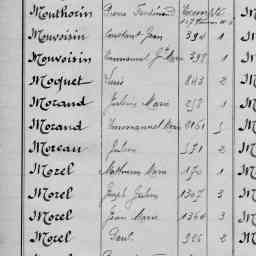 Monthorin Pierre Ferdinand
Mouvoisin Constant Jean 394 1
Mouvoisin Emmanuel J. Marie 398 1
Moquet Louis 843 2
Morand Julien Marie 258 1
Morand Emmanuel 2161 5
Moreau Julien 591 2
Morel Mathurin Marie 170 1
Morel Joseph Julien 1307 3
Morel Jean Marie 1364 3
Morel Paul 926 2